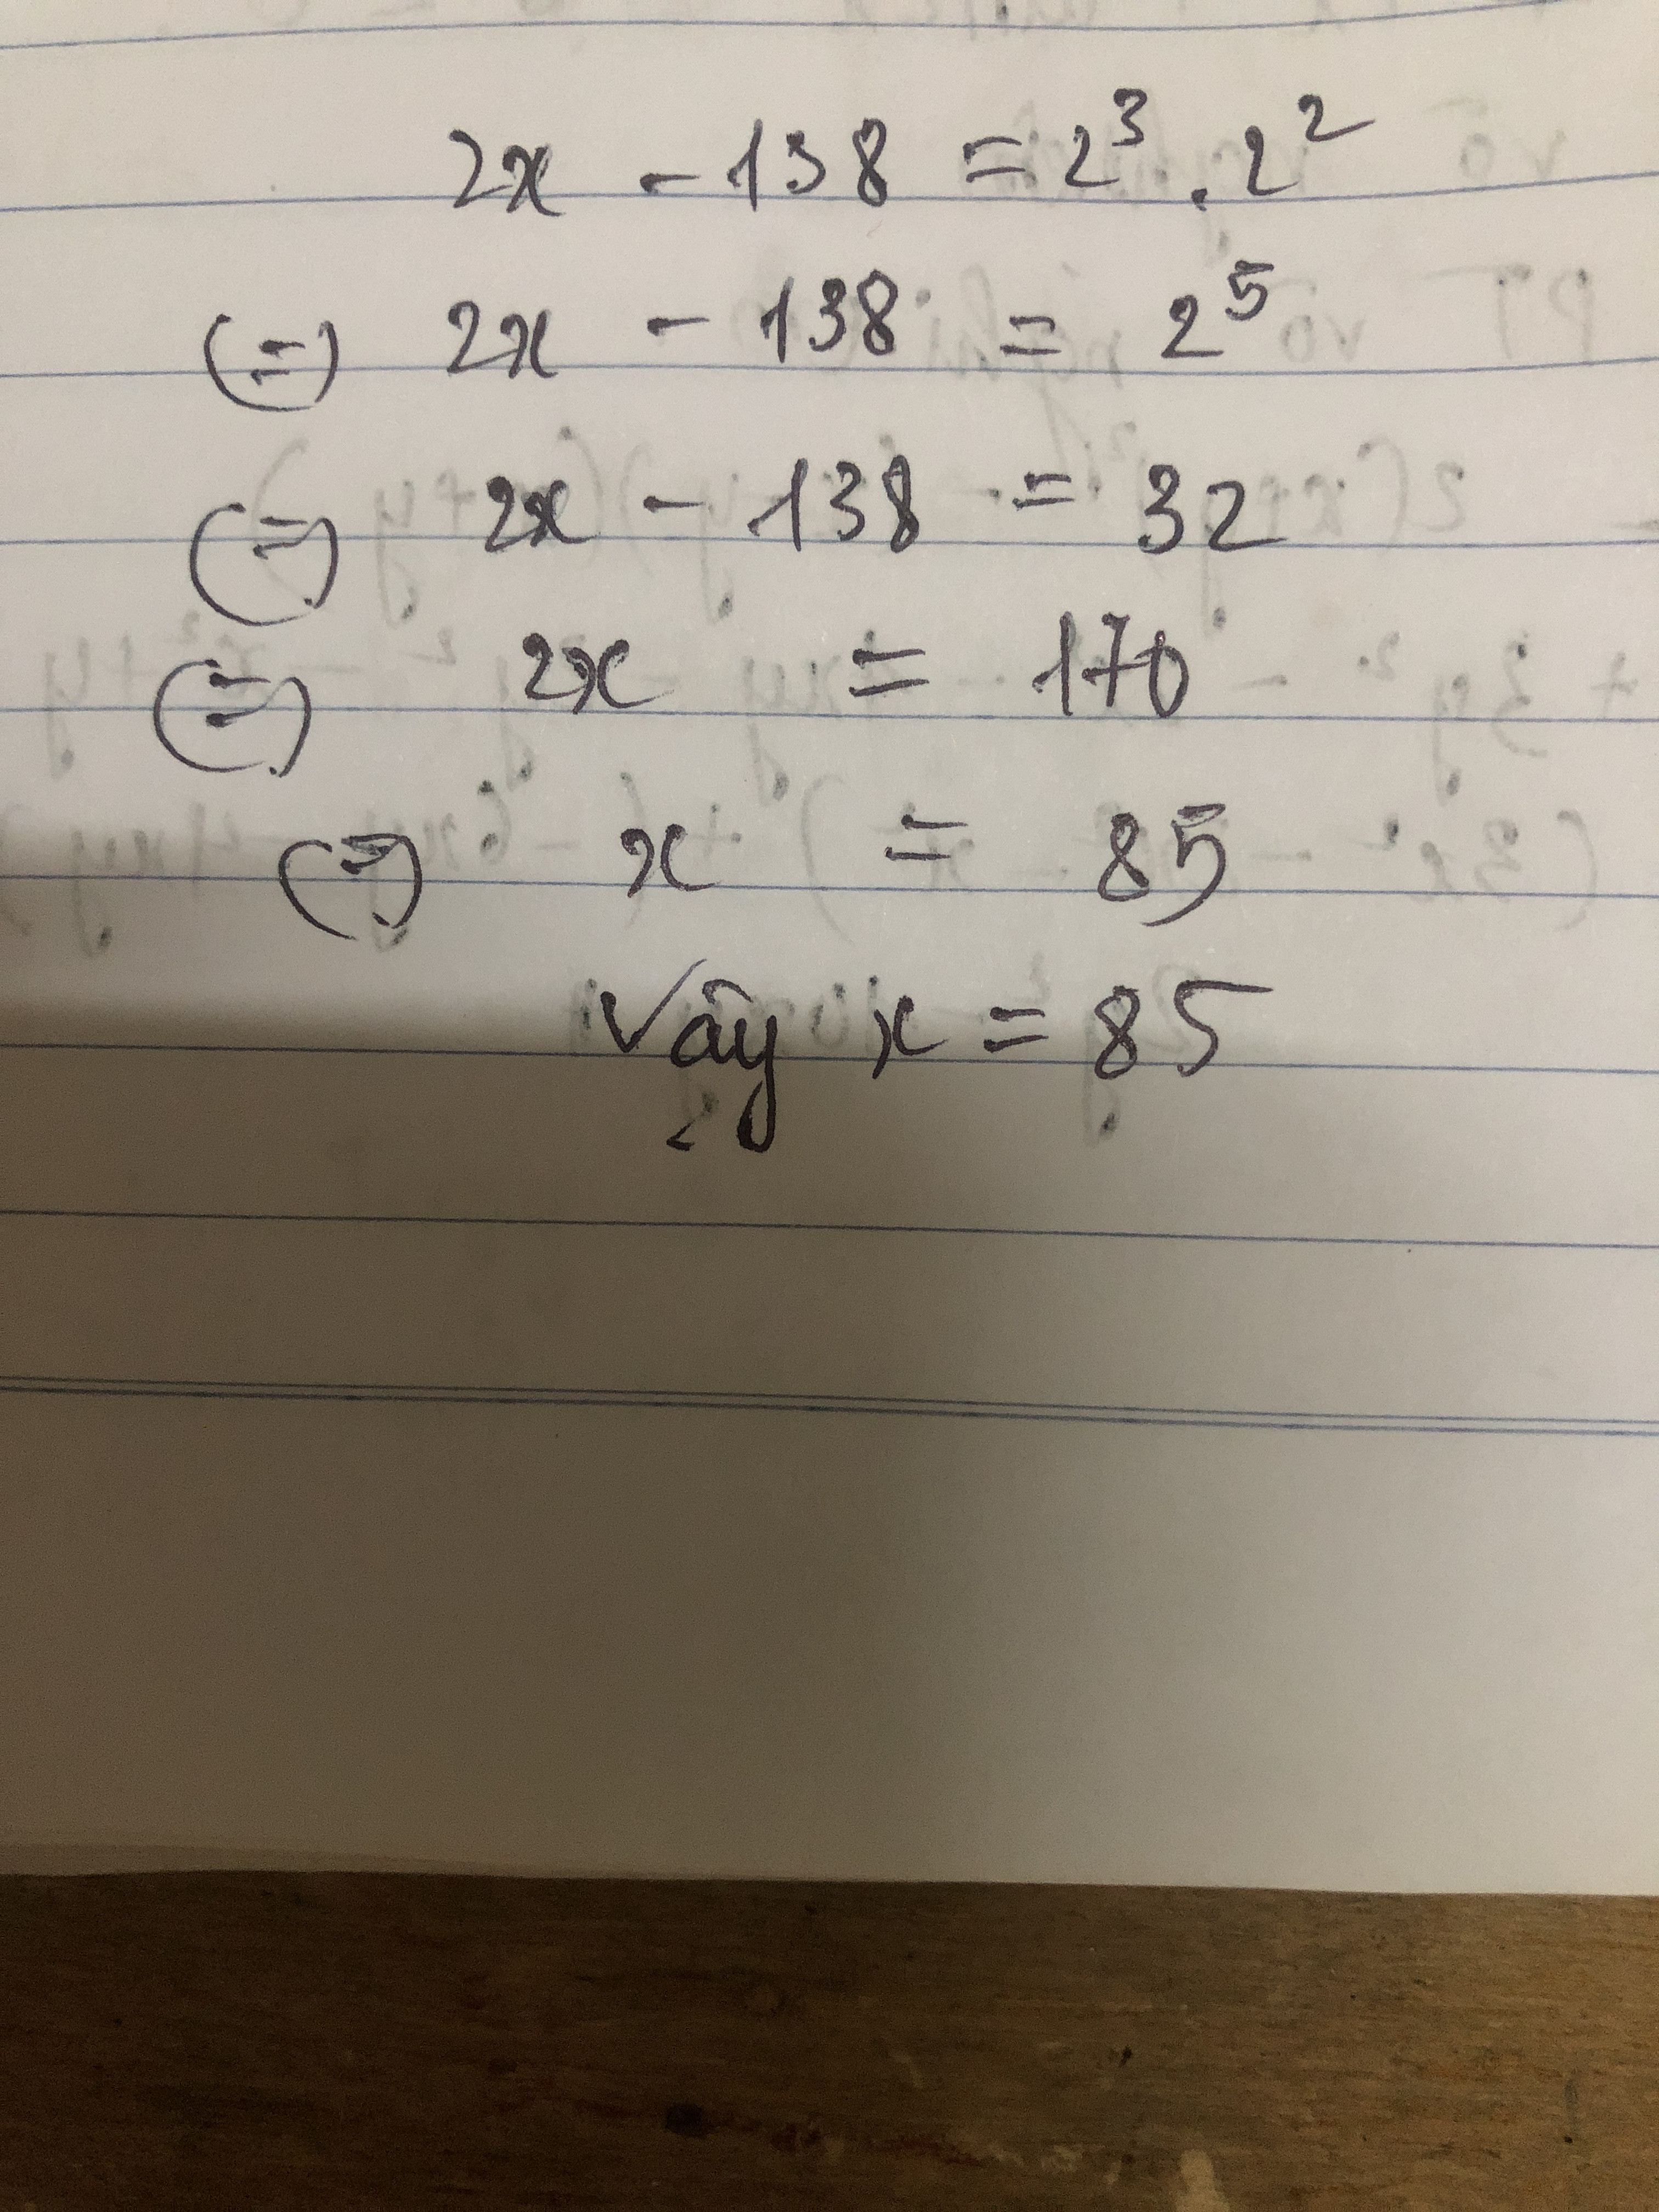 2x - 138 = 2³ . 2²
(=) 2x - 138 = 2⁵
(=) 2x - 138 = 32
(=) 2x = 170
(=) x = 85
Vậy x = 85